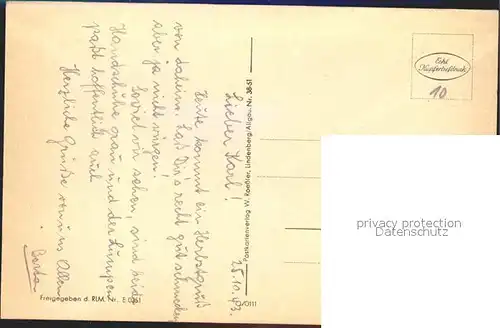 25.10.43.
Lieber Karl!
Heute kommt ein Herbstgruß
von daheim. Laß Dir's recht gut schmecken
aber ja nicht
Soviel wir sehen, sind beide
Handschuhe grau und der Lumpen
paßt hoffentlich auch
Herzliche Grüße von uns Allen
Berta
Postkartenverlag W. Roeßler, Lindenberg/Allgäu. Nr. 38-51
Freigegeben d. RLM. Nr.
Echt
Kupfertiefdruck
10
privacy protection
Datenschutz